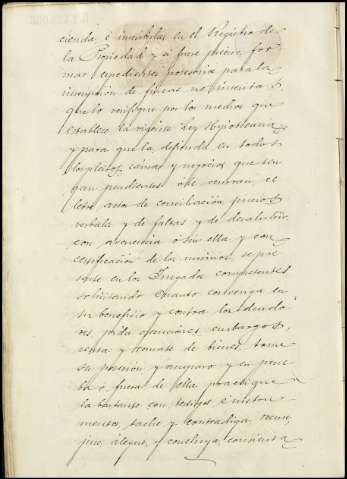 cienda, é inscribirlas en el Registro de
la Propiedad y si fuese preciso for
mar expedientes posesorio para la
inscripción de fincas no inscritas
que lo verifique por los medios que
establece la vigente Ley Hipotecaria
y para que la defienda en todos
los pleitos, causas y negocios que ten
gan pendientes ó le ocurran, ce
lebre actos de conciliación, juicios
verbales y de faltas y de desahucio,
con avenencia ó sin ella y con
certificación de los mismos, se pre
sente en los Juzgados competentes
solicitando cuanto convenga en
su beneficio y contra los deudo
res, pida ejecuciones, embargos,
venta y remate de bienes, tome
su posesión y amparo y en prue
ba ó fuera de ella practique
la bastante con testigos é instru
mentos, tache y contradiga, recuse,
jure, alegue, y concluya, consienta